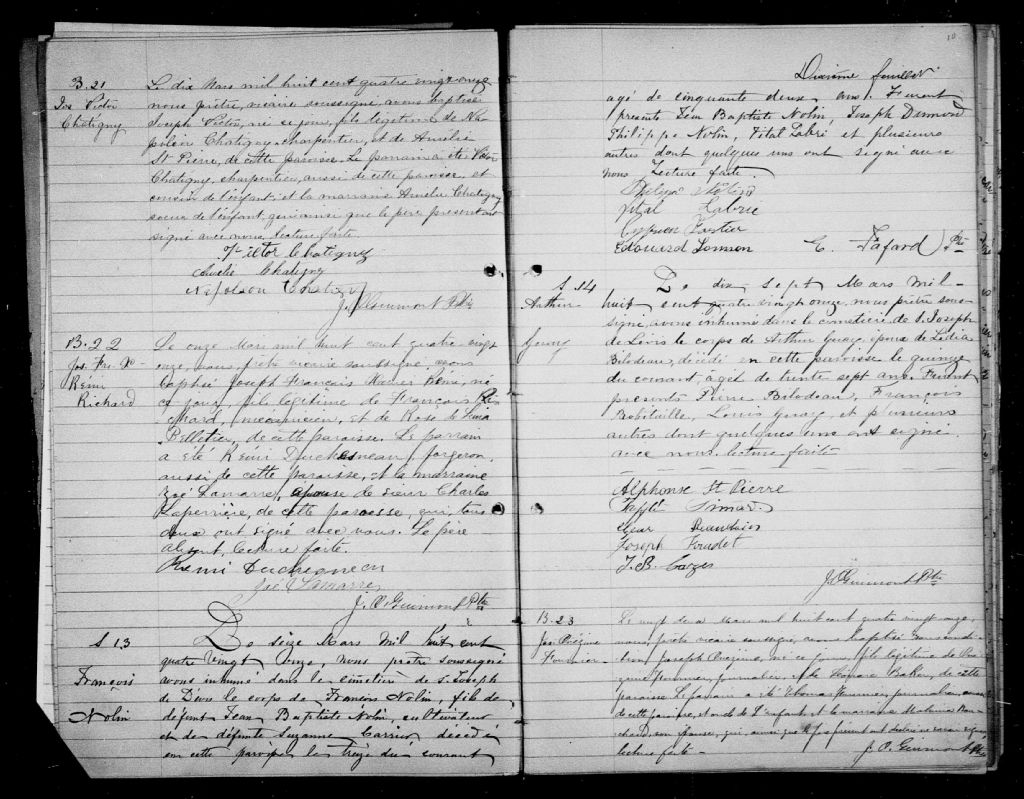 B. 21
Jos Victor
Chatigny
Le dix Mars mil huit cent quatre vingt onze
nous prêtre, vicaire soussigné, avons baptisé
Joseph Victor, né ce jour, fils légitime de Na-
poléon Chatigny, charpentier, et de Amélie
St Pierre, de cette paroisse. Le parrain a été Victor
Chatigny, charpentier, aussi de cette paroisse, et
cousin de l'enfant, et la marraine Amélie Chatigny
soeur de l'enfant, qui ainsi que le père présent ont
signé avec nous. Lecture faite.
Victor Chatigny
Amélie Chatigny
Napoléon
J. O. Guimont Ptre
B. 22
Jos. Frs. X
Rémi
Richard
Le onze Mars mil huit cent quatre vingt
onze nous, prêtre vicaire soussigné, avons
baptisé Joseph François Xavier Rémi, né
ce jour, fils légitime de François Ri-
chard, mécanicien, et de Rose de Lima
Pelletier, de cette paroisse. Le parrain
a été Rémi Duchesneau, forgeron,
aussi de cette paroisse, et la marraine
Zoé Lamarre, épouse de sieur Charles
Laperrière, de cette paroisse, qui, tous
deux ont signé avec nous. Le père
absent, lecture faite.
Rémi Duchesneau
Zoé Lamarre
J. O. Guimont Ptre
S 13
François
Nolin
Le seize Mars mil huit cent
quatre vingt onze, nous prêtre soussigné
avons inhumé dans le cimetière de S. Joseph
de Lévis le corps de François Nolin, fils de
défunt Jean Baptiste Nolin, cultivateur
et de défunte Suzanne Carrier décédé
en cette paroisse le treize du courant
10
Dixième feuillet
agé de cinquante deux ans. Furent
présents Jean Baptiste Nolin, Joseph Dumond
Philippe Nolin, Vital Labrie et plusieurs
autres dont quelques uns ont signé avec
nous Lecture faite.
Vital Labrie
Cyprien
Edouard E. Fafard Ptre
S. 14
Arthur
Guay
Le dix sept Mars mil
huit cent quatre vingt onze, nous prêtre sous-
signé, avons inhumé dans le cimetière de S. Joseph
de Lévis le corps de Arthur Guay, époux de Lédia
Bilodeau, décédé en cette paroisse le quinze
du courant, âgé de trente sept ans. Furent
présents Pierre Bilodeau, François
Robitaille, Louis Guay, et plusieurs
autres dont quelques uns ont signé
avec nous. lecture faite
Alphonse St Pierre
Joseph
J. B.
J. O. Guimont Ptre
B. 23
Jos. Onézime
Fournier
Le vingt deux Mars mil huit cent quatre vingt onze,
nous prêtre vicaire soussigné, avons baptisé sous condi-
tion, Joseph Onézime, né ce jour, fils légitime de
Fournier, journalier, et de Baker, de cette
paroisse. Le parrain a été Thomas Fournier, journalier, aussi
de cette paroisse, et oncle de l'enfant, et la marraine
son épouse, qui, ainsi que le père présent ont déclaré ne savoir signer,
lecture faite - J. O. Guimont Ptre